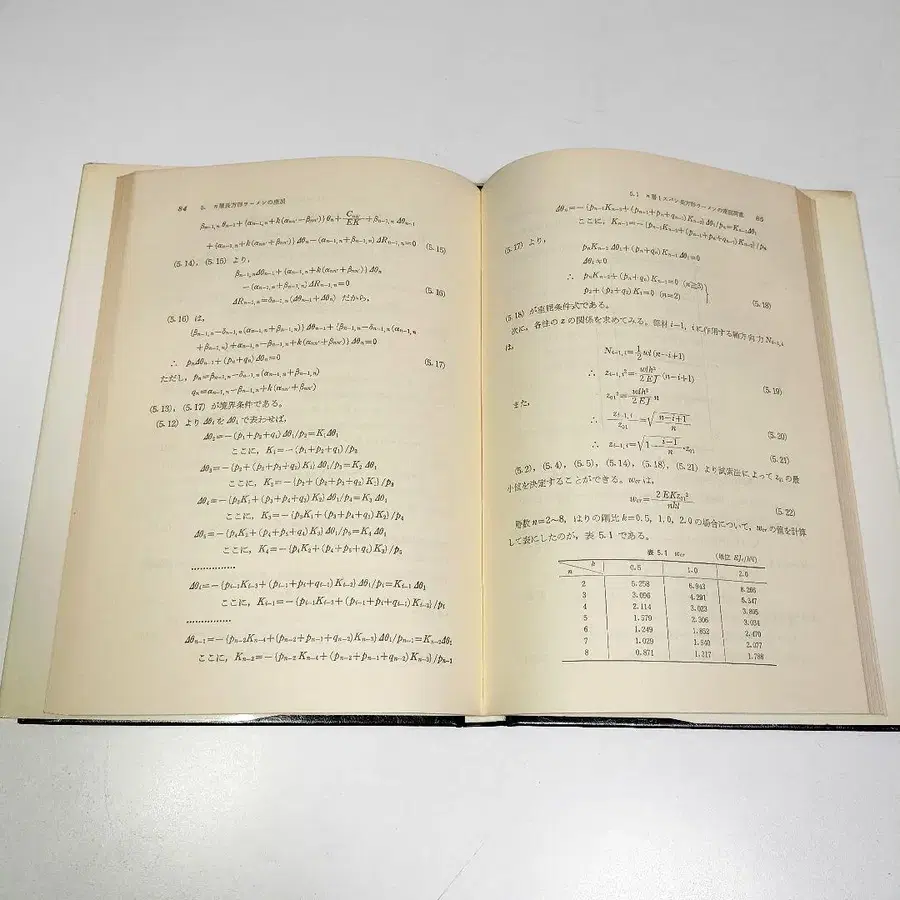 84 5. n層長方形ラーメンの座屈
β_{n-1,n}θ_{n-1}+{α_{n-1,n}+k(α_{nn'}-β_{nn'})}θ_n+C_{nn'}/EK+β_{n-1,n}Δθ_{n-1}
+{α_{n-1,n}+k(α_{nn'}+β_{nn'})}Δθ_n-(α_{n-1,n}+β_{n-1,n})ΔR_{n-1,n}=0 (5.15)
(5.14), (5.15) より,
β_{n-1,n}Δθ_{n-1}+{α_{n-1,n}+k(α_{nn'}+β_{nn'})}Δθ_n
-(α_{n-1,n}+β_{n-1,n})ΔR_{n-1,n}=0 (5.16)
ΔR_{n-1,n}=δ_{n-1,n}(Δθ_{n-1}+Δθ_n) だから,
(5.16) は,
{β_{n-1,n}-δ_{n-1,n}(α_{n-1,n}+β_{n-1,n})}Δθ_{n-1}+{β_{n-1,n}-δ_{n-1,n}(α_{n-1,n}
+β_{n-1,n})+α_{n-1,n}-β_{n-1,n}+k(α_{nn'}+β_{nn'})}Δθ_n=0
∴ p_nΔθ_{n-1}+(p_n+q_n)Δθ_n=0 (5.17)
ただし, p_n=β_{n-1,n}-δ_{n-1,n}(α_{n-1,n}+β_{n-1,n})
q_n=α_{n-1,n}-β_{n-1,n}+k(α_{nn'}+β_{nn'})
(5.13), (5.17) が境界条件である。
(5.12) より Δθ_i を Δθ_1 で表わせば,
Δθ_2=-(p_1+p_2+q_1)Δθ_1/p_2=K_1Δθ_1
ここに, K_1=-(p_1+p_2+q_1)/p_2
Δθ_3=-{p_2+(p_2+p_3+q_2)K_1}Δθ_1/p_3=K_2Δθ_1
ここに, K_2=-{p_2+(p_2+p_3+q_2)K_1}/p_3
Δθ_4=-{p_3K_1+(p_3+p_4+q_3)K_2}Δθ_1/p_4=K_3Δθ_1
ここに, K_3=-{p_3K_1+(p_3+p_4+q_3)K_2}/p_4
Δθ_5=-{p_4K_2+(p_4+p_5+q_4)K_3}Δθ_1/p_5=K_4Δθ_1
ここに, K_4=-{p_4K_2+(p_4+p_5+q_4)K_3}/p_5
……………
Δθ_i=-{p_{i-1}K_{i-3}+(p_{i-1}+p_i+q_{i-1})K_{i-2}}Δθ_1/p_i=K_{i-1}Δθ_1
ここに, K_{i-1}=-{p_{i-1}K_{i-3}+(p_{i-1}+p_i+q_{i-1})K_{i-2}}/p_i
……………
Δθ_{n-1}=-{p_{n-2}K_{n-4}+(p_{n-2}+p_{n-1}+q_{n-2})K_{n-3}}Δθ_1/p_{n-1}=K_{n-2}Δθ_1
ここに, K_{n-2}=-{p_{n-2}K_{n-4}+(p_{n-2}+p_{n-1}+q_{n-2})K_{n-3}}/p_{n-1}
5.1 n層1スパン長方形ラーメンの座屈荷重 85
Δθ_n=-{p_{n-1}K_{n-3}+(p_{n-1}+p_n+q_{n-1})K_{n-2}}Δθ_1/p_n=K_{n-1}Δθ_1
ここに, K_{n-1}=-{p_{n-1}K_{n-3}+(p_{n-1}+p_n+q_{n-1})K_{n-2}}/p_n
(5.17) より,
p_nK_{n-2}Δθ_1+(p_n+q_n)K_{n-1}Δθ_1=0
Δθ_1≠0
∴ p_nK_{n-2}+(p_n+q_n)K_{n-1}=0 (n≧3)
p_2+(p_2+q_2)K_1=0 (n=2) (5.18)
(5.18) が座屈条件式である。
次に, 各柱の z の関係を求めてみる。部材 i-1, i に作用する軸方向力 N_{i-1,i}
は,
N_{i-1,i}=1/2 wl(n-i+1)
∴ z_{i-1,i}²=wlh²/2EJ (n-i+1) (5.19)
また, z_{01}²=wlh²/2EJ n
∴ z_{i-1,i}/z_{01}=√((n-i+1)/n) (5.20)
∴ z_{i-1,i}=√(1-(i-1)/n)・z_{01} (5.21)
(5.2), (5.4), (5.5), (5.14), (5.18), (5.21) より試索法によって z_{01} の最
小値を決定することができる。w_{cr} は,
w_{cr}=2EKz_{01}²/nhl (5.22)
層数 n=2~8, はりの剛比 k=0.5, 1.0, 2.0 の場合について, w_{cr} の値を計算
して表にしたのが, 表 5.1 である。
表 5.1 w_{cr} (単位 EJ_c/h²l)
n k 0.5 1.0 2.0
2 5.258 6.943 8.266
3 3.096 4.291 5.347
4 2.114 3.023 3.895
5 1.579 2.306 3.034
6 1.249 1.852 2.470
7 1.029 1.540 2.077
8 0.871 1.317 1.788